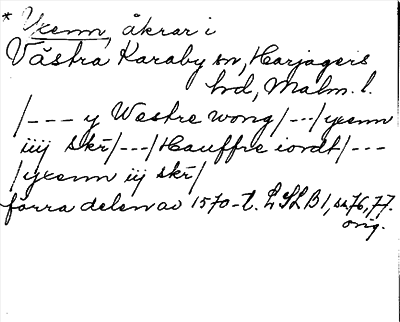 * Yxenn, åkrar i
Västra Karaby sn, Harjagers
hd, Malm. l.
/--- y Westre wong/---/yxenn
iiij skr/---/Hauffre iordt/---
/yxenn iij skr/
förra delen av 1570-t. LSLB1, sn 76, 77.
orig.